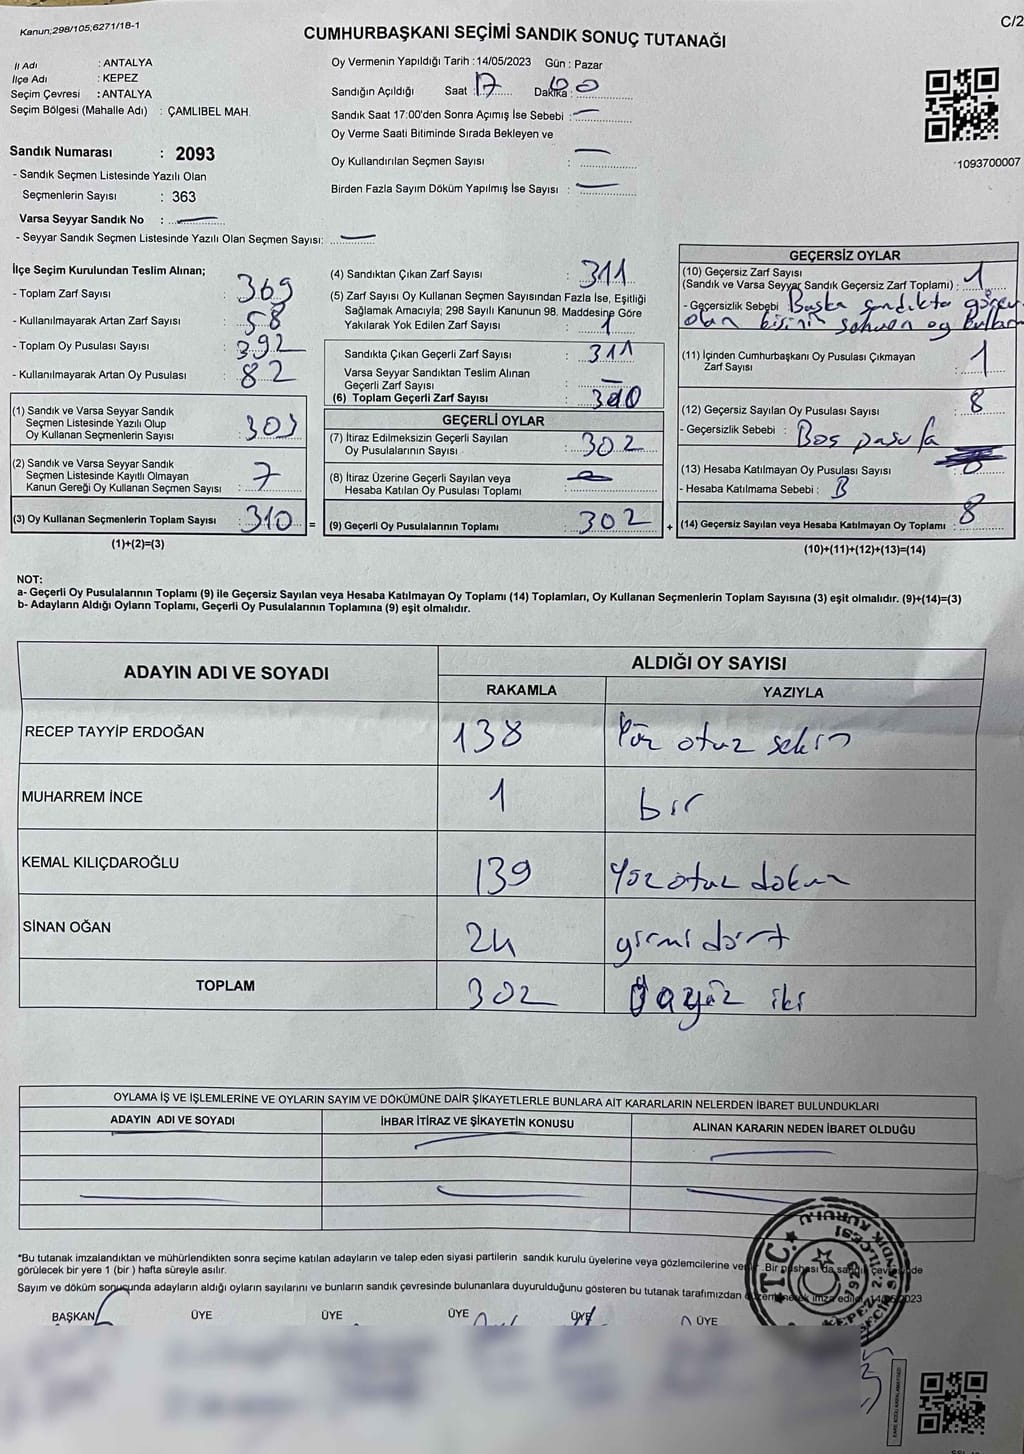 Kanun;298/105;6271/18-1
C/2
CUMHURBAŞKANI SEÇİMİ SANDIK SONUÇ TUTANAĞI
İl Adı : ANTALYA
İlçe Adı : KEPEZ
Seçim Çevresi : ANTALYA
Seçim Bölgesi (Mahalle Adı) : ÇAMLIBEL MAH.
Sandık Numarası : 2093
- Sandık Seçmen Listesinde Yazılı Olan
Seçmenlerin Sayısı : 363
Varsa Seyyar Sandık No :
- Seyyar Sandık Seçmen Listesinde Yazılı Olan Seçmen Sayısı:
Oy Vermenin Yapıldığı Tarih : 14/05/2023 Gün : Pazar
Sandığın Açıldığı Saat : 17 Dakika : 00
Sandık Saat 17:00'den Sonra Açımış İse Sebebi :
Oy Verme Saati Bitiminde Sırada Bekleyen ve
Oy Kullandırılan Seçmen Sayısı :
Birden Fazla Sayım Döküm Yapılmış İse Sayısı :
1093700007
İlçe Seçim Kurulundan Teslim Alınan;
- Toplam Zarf Sayısı : 369
- Kullanılmayarak Artan Zarf Sayısı : 58
- Toplam Oy Pusulası Sayısı : 392
- Kullanılmayarak Artan Oy Pusulası : 82
(1) Sandık ve Varsa Seyyar Sandık
Seçmen Listesinde Yazılı Olup
Oy Kullanan Seçmenlerin Sayısı : 303
(2) Sandık ve Varsa Seyyar Sandık
Seçmen Listesinde Kayıtlı Olmayan
Kanun Gereği Oy Kullanan Seçmen Sayısı : 7
(3) Oy Kullanan Seçmenlerin Toplam Sayısı : 310 =
(1)+(2)=(3)
(4) Sandıktan Çıkan Zarf Sayısı : 311
(5) Zarf Sayısı Oy Kullanan Seçmen Sayısından Fazla İse, Eşitliği
Sağlamak Amacıyla; 298 Sayılı Kanunun 98. Maddesine Göre
Yakılarak Yok Edilen Zarf Sayısı : 1
Sandıkta Çıkan Geçerli Zarf Sayısı : 311
Varsa Seyyar Sandıktan Teslim Alınan
Geçerli Zarf Sayısı :
(6) Toplam Geçerli Zarf Sayısı : 310
GEÇERLİ OYLAR
(7) İtiraz Edilmeksizin Geçerli Sayılan
Oy Pusulalarının Sayısı : 302
(8) İtiraz Üzerine Geçerli Sayılan veya
Hesaba Katılan Oy Pusulası Toplamı :
(9) Geçerli Oy Pusulalarının Toplamı : 302 +
GEÇERSİZ OYLAR
(10) Geçersiz Zarf Sayısı
(Sandık ve Varsa Seyyar Sandık Geçersiz Zarf Toplamı) : 1
- Geçersizlik Sebebi : Başka sandıkta görev
olan kişinin sehven oy kullan
(11) İçinden Cumhurbaşkanı Oy Pusulası Çıkmayan
Zarf Sayısı : 1
(12) Geçersiz Sayılan Oy Pusulası Sayısı : 8
- Geçersizlik Sebebi : Boş pusula
(13) Hesaba Katılmayan Oy Pusulası Sayısı :
- Hesaba Katılmama Sebebi : B
(14) Geçersiz Sayılan veya Hesaba Katılmayan Oy Toplamı : 8
(10)+(11)+(12)+(13)=(14)
NOT:
a- Geçerli Oy Pusulalarının Toplamı (9) ile Geçersiz Sayılan veya Hesaba Katılmayan Oy Toplamı (14) Toplamları, Oy Kullanan Seçmenlerin Toplam Sayısına (3) eşit olmalıdır. (9)+(14)=(3)
b- Adayların Aldığı Oyların Toplamı, Geçerli Oy Pusulalarının Toplamına (9) eşit olmalıdır.
ADAYIN ADI VE SOYADI ALDIĞI OY SAYISI
RAKAMLA YAZIYLA
RECEP TAYYİP ERDOĞAN 138 Yüz otuz sekiz
MUHARREM İNCE 1 bir
KEMAL KILIÇDAROĞLU 139 Yüz otuz dokuz
SİNAN OĞAN 24 yirmi dört
TOPLAM 302 üçyüz iki
OYLAMA İŞ VE İŞLEMLERİNE VE OYLARIN SAYIM VE DÖKÜMÜNE DAİR ŞİKAYETLERLE BUNLARA AİT KARARLARIN NELERDEN İBARET BULUNDUKLARI
ADAYIN ADI VE SOYADI İHBAR İTİRAZ VE ŞİKAYETİN KONUSU ALINAN KARARIN NEDEN İBARET OLDUĞU
*Bu tutanak imzalandıktan ve mühürlendikten sonra seçime katılan adayların ve talep eden siyasi partilerin sandık kurulu üyelerine veya gözlemcilerine ver Bir nüshası da sandık çevresinde
görülecek bir yere 1 (bir ) hafta süreyle asılır.
Sayım ve döküm sonucunda adayların aldığı oyların sayılarını ve bunların sandık çevresinde bulunanlara duyurulduğunu gösteren bu tutanak tarafımızdan düzenlenerek imza edildi. 14/05/2023
BAŞKAN ÜYE ÜYE ÜYE ÜYE ÜYE
T.C.